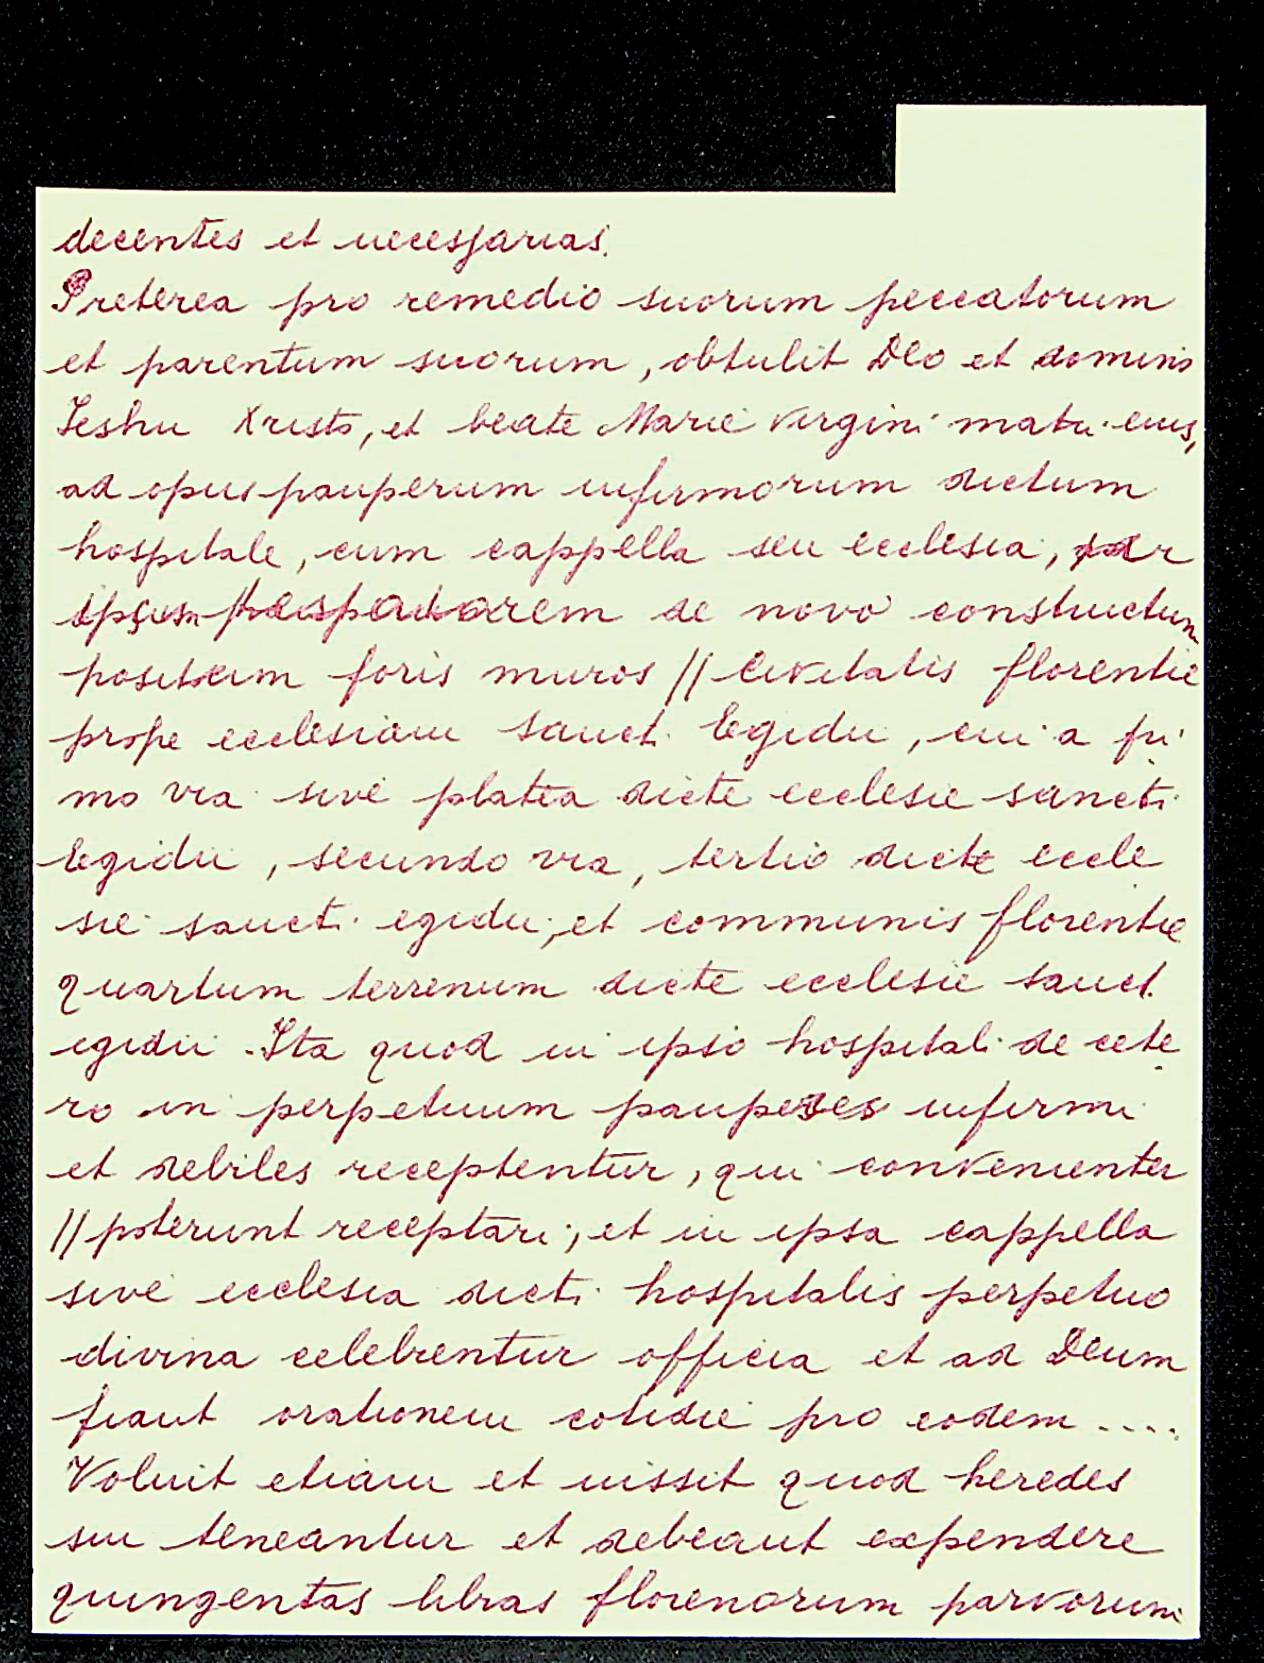 decentes et necessarias.
Preterea pro remedio suorum peccatorum
et parentum suorum, obtulit Deo et domino
Ieshu Xristo, et beate Marie virgini matri eius,
ad opus pauperum infirmorum dictum
hospitale, cum cappella seu ecclesia, per
ipsum de novo constructum
positum foris muros // Civitatis florentie
prope ecclesiam sancti Egidii, cui a pri
mo via sive platea dicte ecclesie sancti
Egidii, secundo via, tertio dicte eccle
sie sancti egidii, et communis florentie
quartum terrenum dicte ecclesie sancti
egidii. Ita quod in ipso hospitali de cete
ro in perpetuum pauperes infirmi
et debiles receptentur, qui convenienter
// poterunt receptari; et in ipsa cappella
sive ecclesia dicti hospitalis perpetuo
divina celebrentur officia et ad Deum
fiant orationem cotidie pro eodem ....
Voluit etiam et iussit quod heredes
sui teneantur et debeant expendere
quingentas libras florenorum parvorum